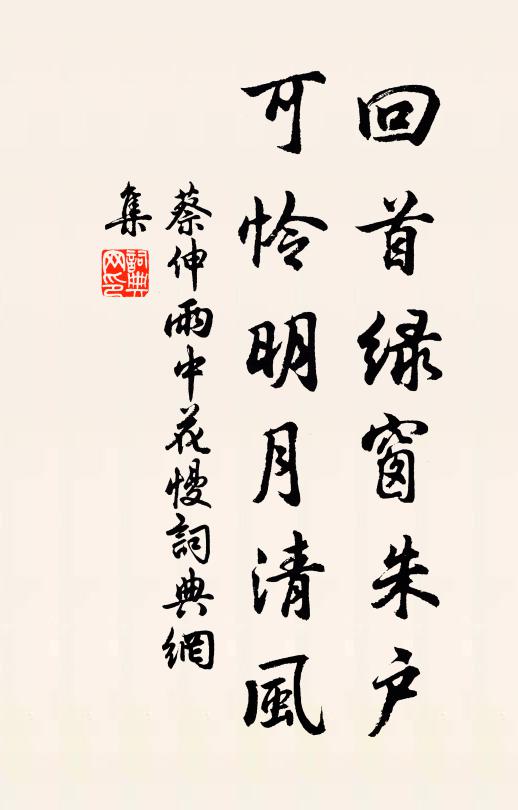 回首绿窗朱户
可怜明月清風
蔡伸雨中花慢詞典網
集
詞典
网印